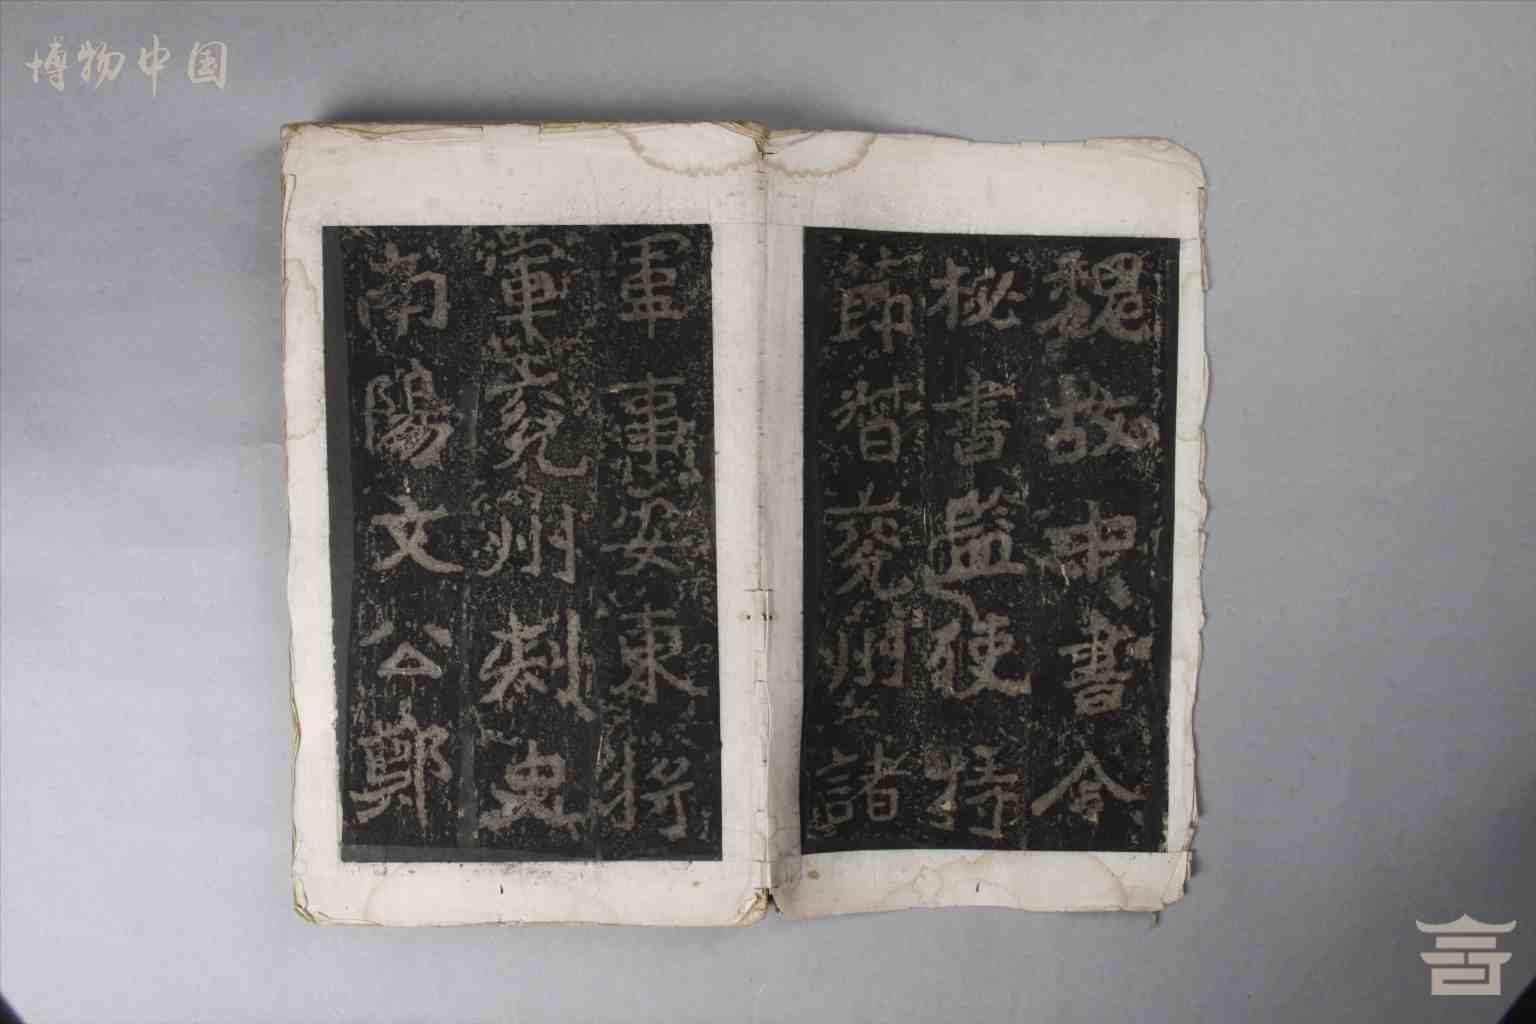 博物中国
魏故中書令
秘書監使持
節督兖州諸
軍事安東將
軍兖州刺史
南陽文公鄭